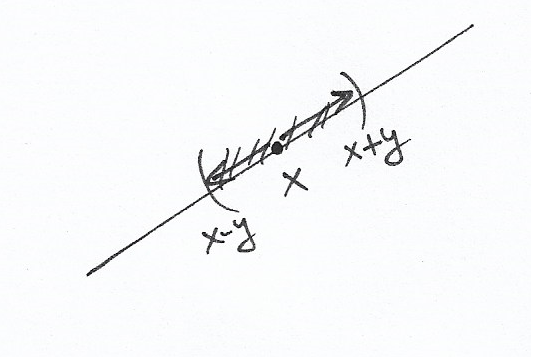 x+y
x
x-y